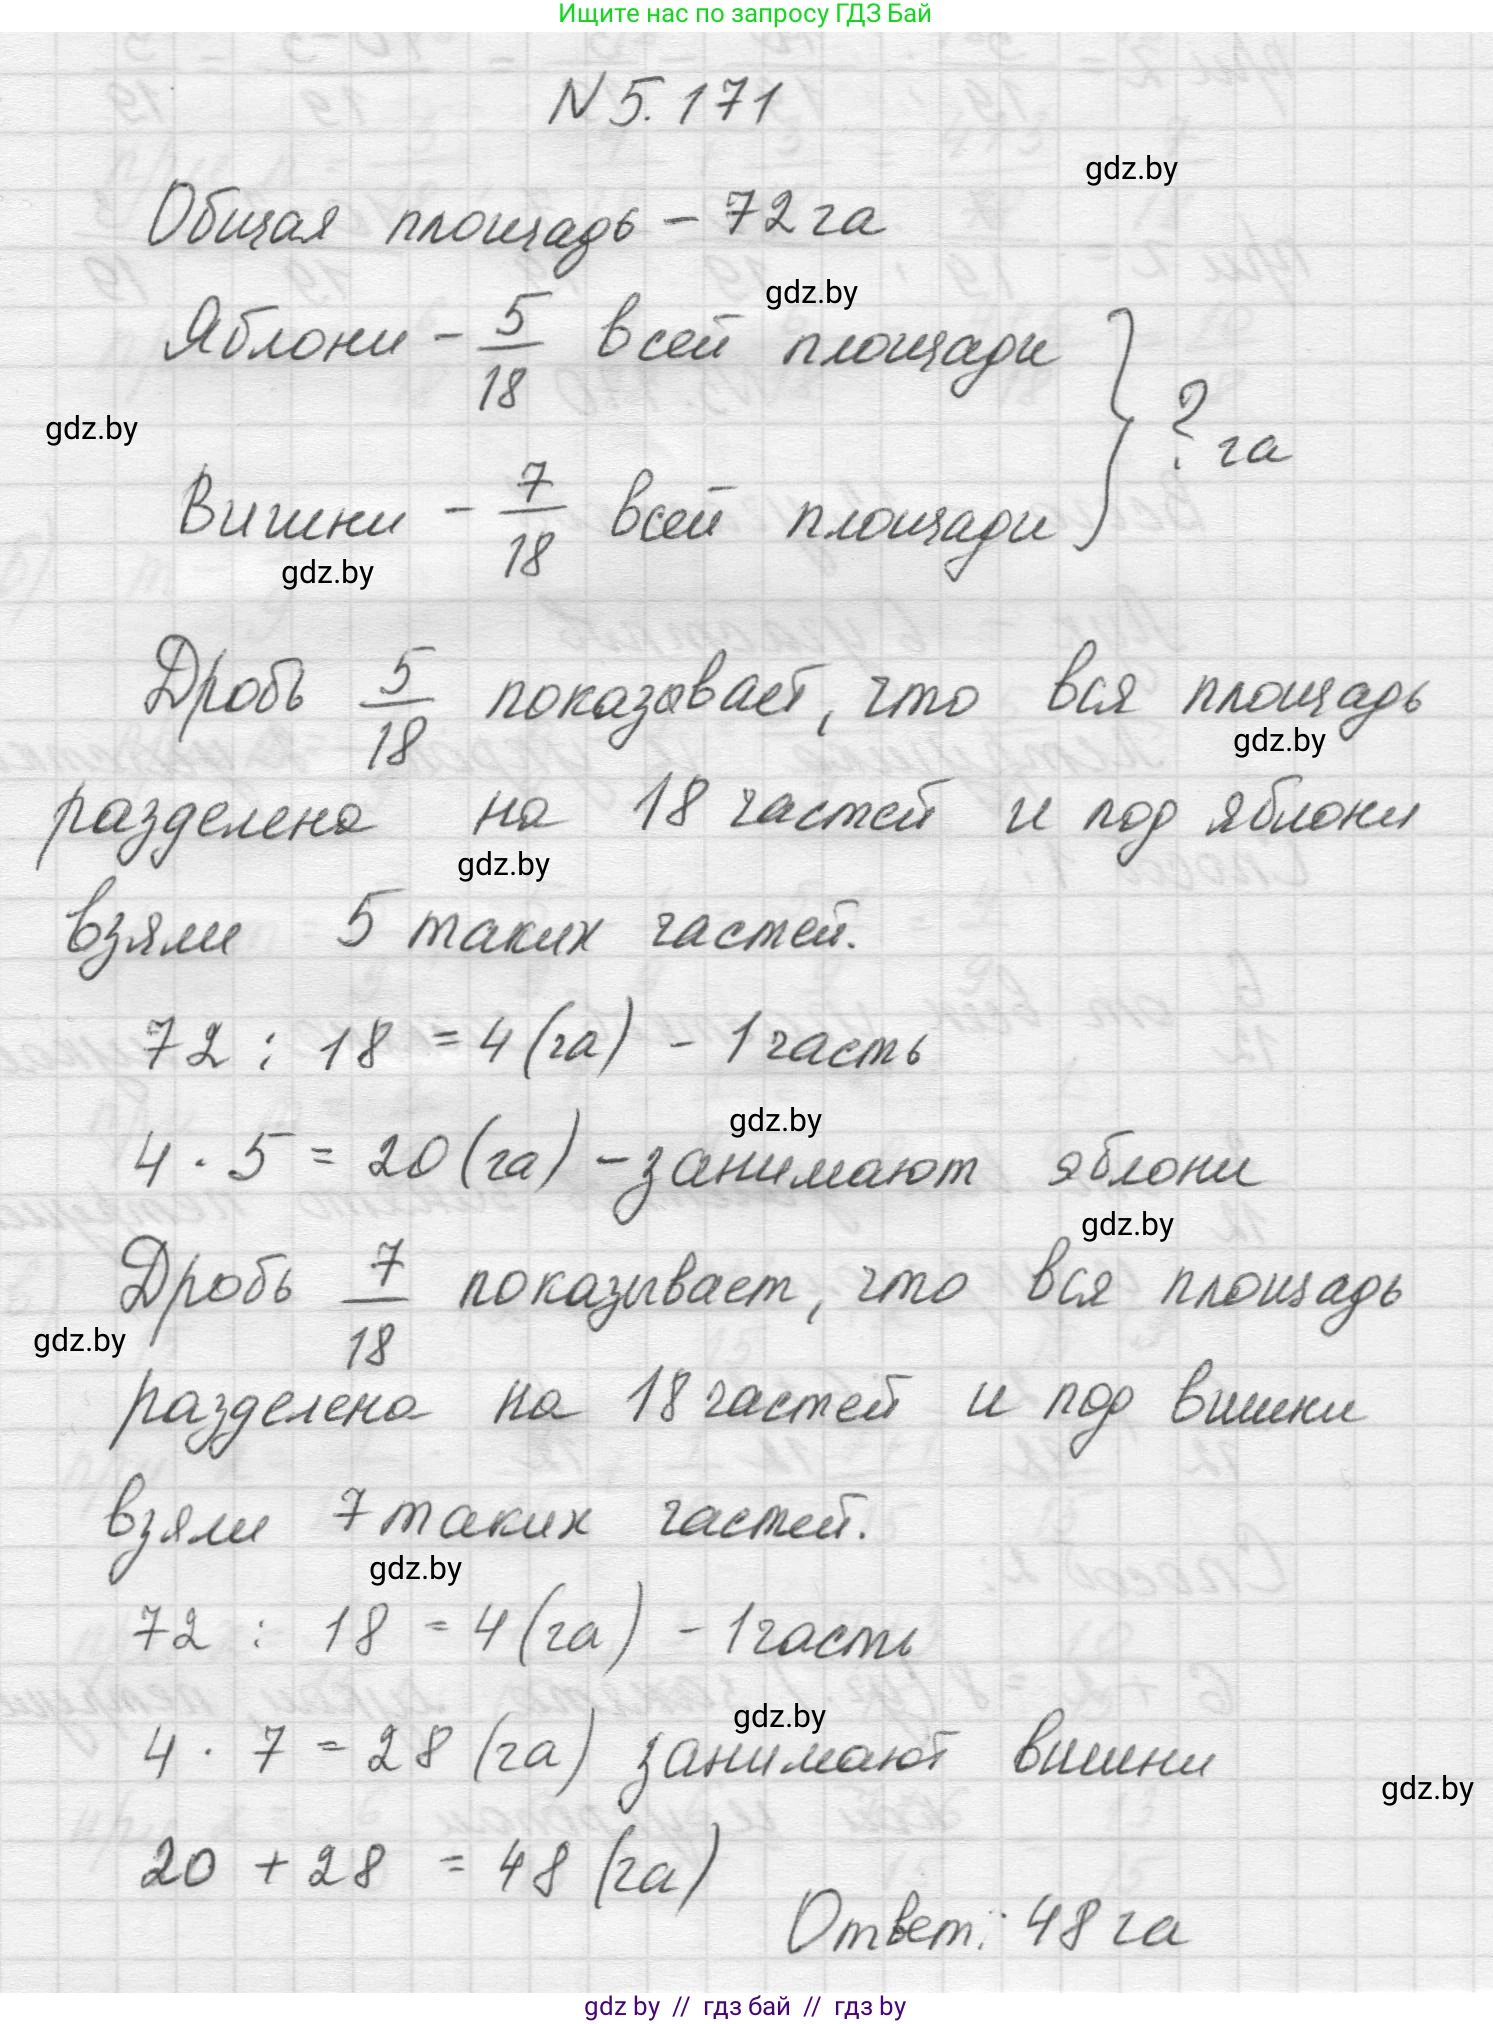 Ищите нас по запросу ГДЗ Бай
N 5.171
gdz.by
Общая площадь - 72 га
gdz.by
Яблони - 5/18 всей площади
gdz.by
? га
Вишни - 7/18 всей площади
gdz.by
Дробь 5/18 показавает, что вся площадь
gdz.by
разделена на 18 частей и под яблони
gdz.by
взяли 5 таких частей.
72 : 18 = 4 (га) - 1 часть
gdz.by
4 · 5 = 20 (га) - занимают яблони
gdz.by
Дробь 7/18 показывает, что вся площадь
gdz.by
разделена на 18 частей и под вишни
взяли 7 таких частей.
gdz.by
72 : 18 = 4 (га) - 1 часть
gdz.by
4 · 7 = 28 (га) занимают вишни
gdz.by
20 + 28 = 48 (га)
Ответ: 48 га
gdz by // гдз бай // гдз by